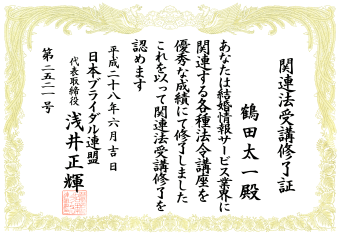 関連法受講修了証
鶴田太一殿
あなたは結婚情報サービス業界に
関連する各種法令講座を
優秀な成績にて修了しました
これを以って関連法受講修了を
認めます
平成二十八年六月吉日
日本ブライダル連盟
代表取締役 浅井正輝
第二五二一号